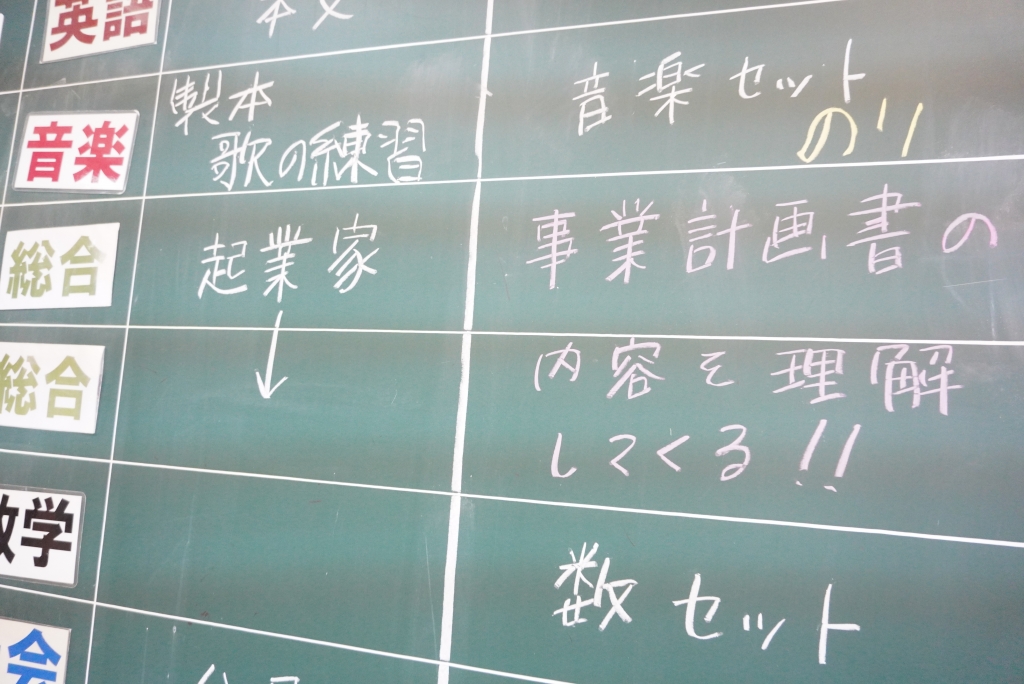 英語 本文
音楽 製本 音楽セット
歌の練習 のり
総合 起業家 事業計画書の
総合 内容を理解
してくる!!
数学 数セット
会